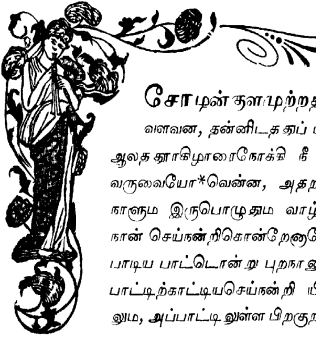 சோழன் குளமுற்றத
வளவன, தன்னிடத துப்
ஆலத தூர்கிழாரைநோக்கி நீ
வருவையோ*வென்ன, அதற
நாளும இருபொழுதும வாழ்
நான் செய்நன்றிகொன்றேனே
பாடிய பாட்டொன்று புறநானூ
பாட்டிற்காட்டியசெய்நன்றி யி
லும, அப்பாட்டிலுள்ள பிறகுற